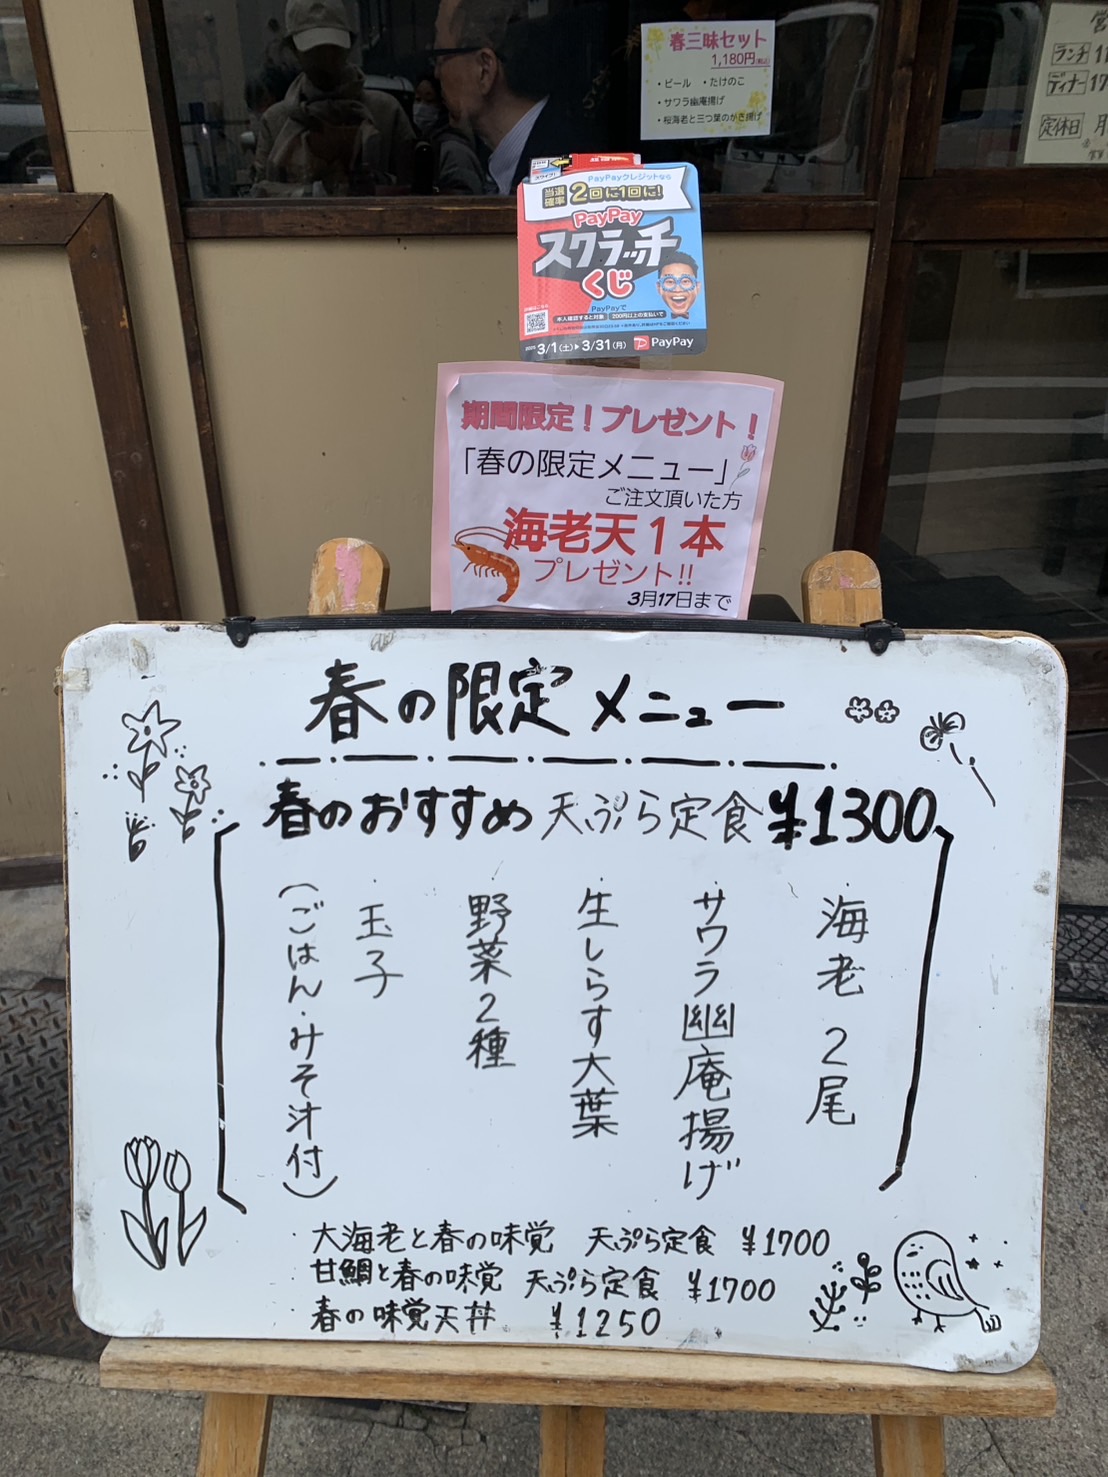 春三昧セット
1,180円(税込)
・ビール ・たけのこ
・サワラ幽庵揚げ
・桜海老と三つ葉のかき揚げ
ランチ 11
ディナー 17
定休日
PayPayクレジットなら
当選確率 2回に1回に!
PayPay
スクラッチ
くじ
PayPayで
本人確認すると対象 200円以上の支払いで
2025 3/1(土)▶3/31(月) PayPay
期間限定!プレゼント!
「春の限定メニュー」
ご注文頂いた方
海老天1本
プレゼント!!
3月17日まで
春の限定メニュー
春のおすすめ天ぷら定食¥1300
・海老2尾
・サワラ幽庵揚げ
・生しらす大葉
・野菜2種
・玉子
(ごはん・みそ汁付)
大海老と春の味覚 天ぷら定食 ¥1700
甘鯛と春の味覚 天ぷら定食 ¥1700
春の味覚天丼 ¥1250